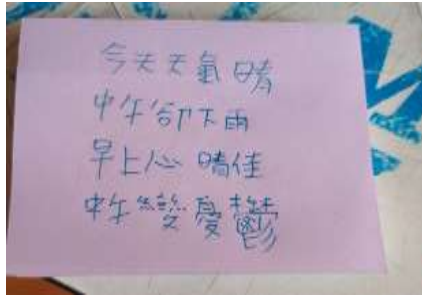 今天天氣晴
中午卻下雨
早上心晴佳
中午變憂鬱